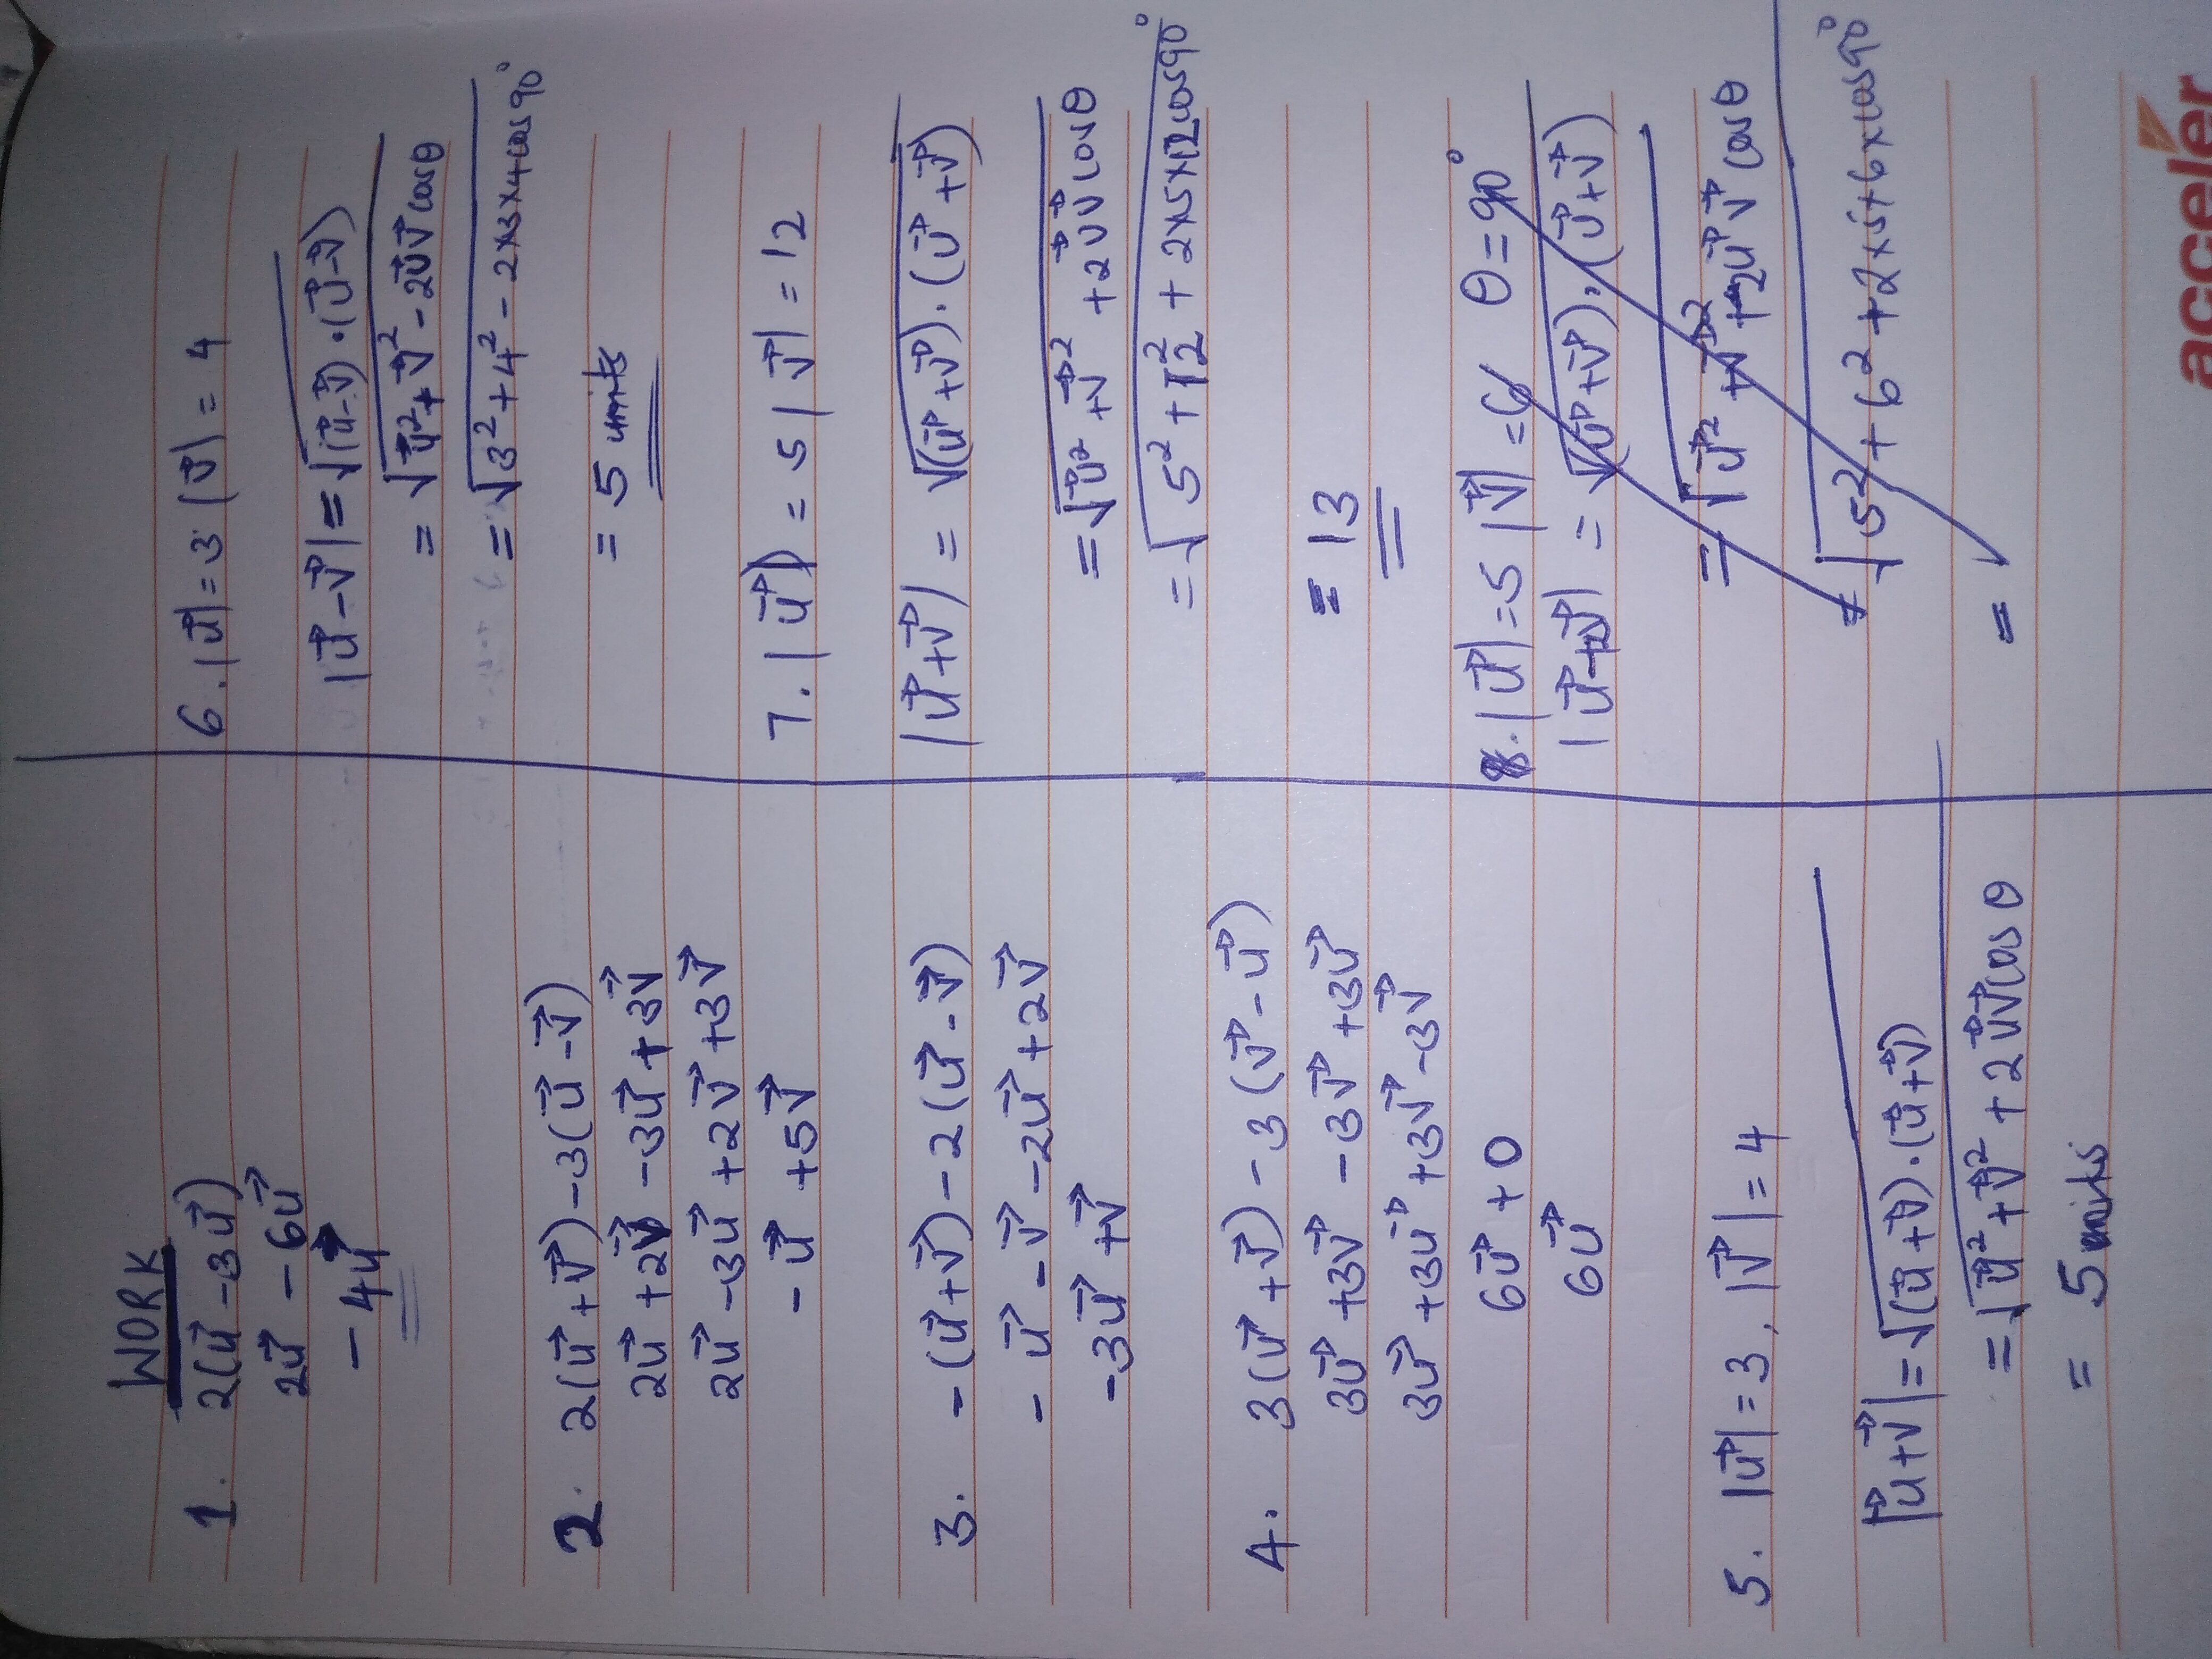 WORK
1. 2(u⃗ -3u⃗)
2u⃗ - 6u⃗
- 4u⃗
2. 2(u⃗+v⃗) -3(u⃗ -v⃗)
2u⃗ +2v⃗ -3u⃗ + 3v⃗
2u⃗ -3u⃗ +2v⃗ +3v⃗
- u⃗ +5v⃗
3. -(u⃗+v⃗) -2(u⃗ -v⃗)
- u⃗ -v⃗ -2u⃗ +2v⃗
-3u⃗ +v⃗
4. 3(u⃗+v⃗) -3(v⃗ -u⃗)
3u⃗ +3v⃗ -3v⃗ +3u⃗
3u⃗ +3u⃗ +3v⃗ -3v⃗
6u⃗ + 0
6u⃗
5. |u⃗| = 3, |v⃗| = 4
|u⃗+v⃗| = √(u⃗+v⃗)·(u⃗+v⃗)
= √u⃗² + v⃗² + 2u⃗v⃗ cos θ
= 5 units
6. |u⃗| = 3 |v⃗| = 4
|u⃗ -v⃗| = √(u⃗-v⃗)·(u⃗-v⃗)
= √u⃗² + v⃗² - 2u⃗v⃗ cos θ
= √3² + 4² - 2×3×4cos 90°
= 5 units
7. |u⃗| = 5 |v⃗| = 12
|u⃗+v⃗| = √(u⃗+v⃗)·(u⃗+v⃗)
= √u⃗² + v⃗² + 2u⃗v⃗ cos θ
= √5² + 12² + 2×5×12cos 90°
= 13
8. |u⃗| = 5 |v⃗| = 6 θ = 90°
|u⃗+v⃗| = √(u⃗+v⃗)·(u⃗+v⃗)
= √u⃗² + v⃗² + 2u⃗v⃗ cos θ
= √5² + 6² + 2×5+6×cos 90°
=
acceler